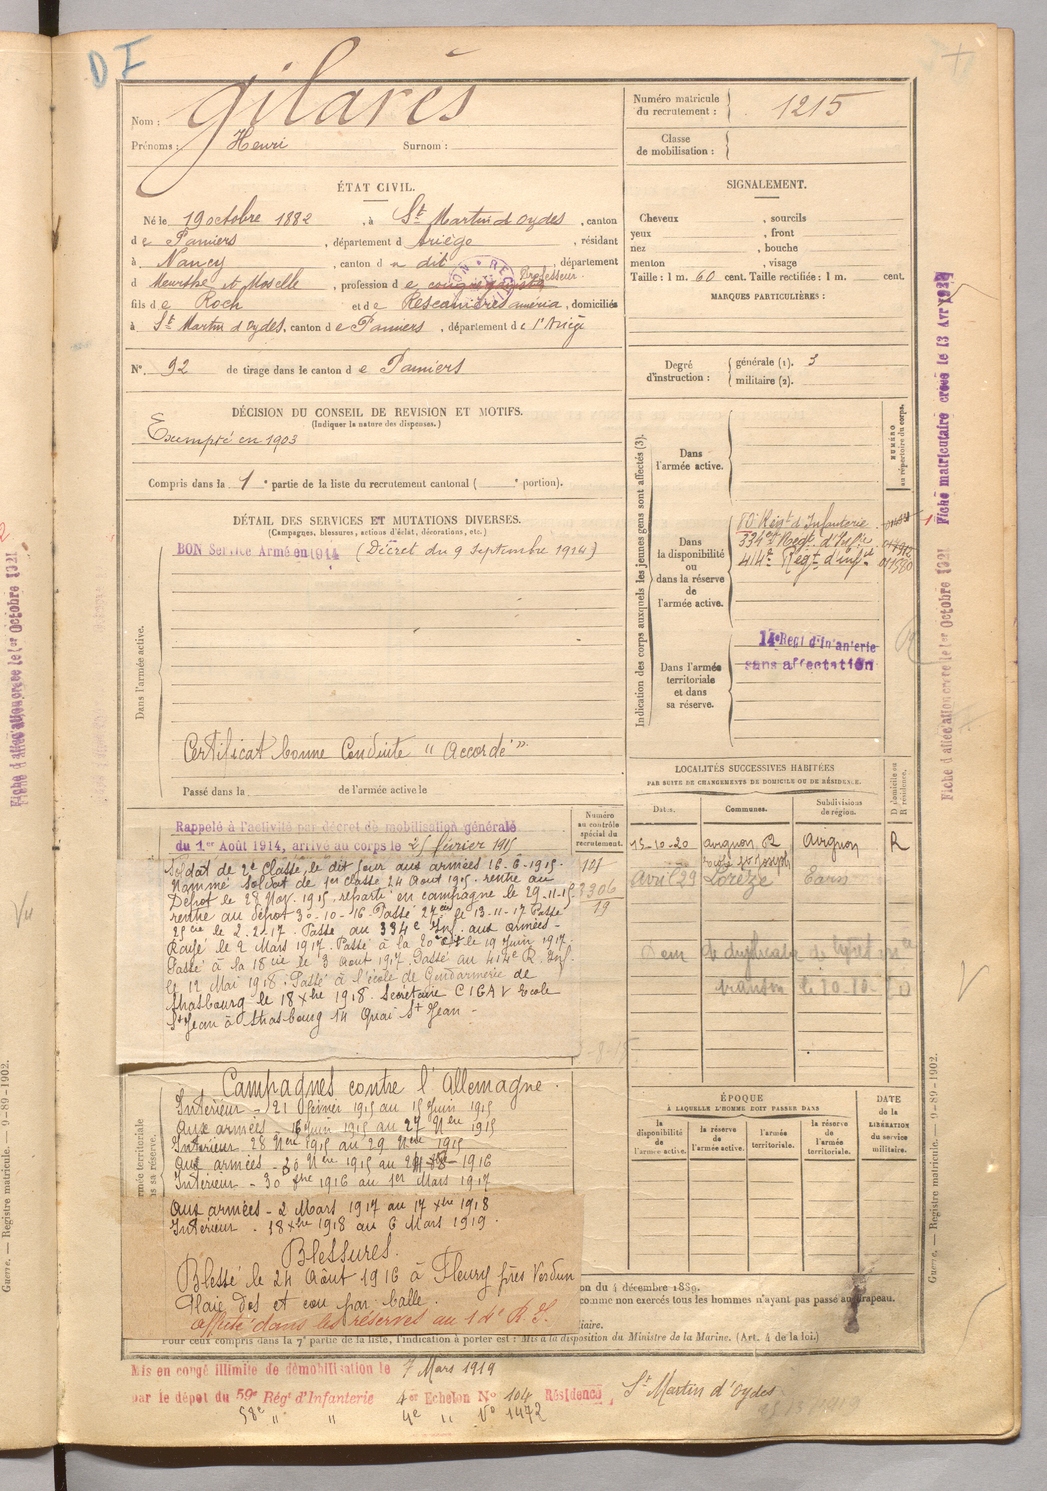 DI
Nom : Gilarès
Prénoms : Henri Surnom :
Numéro matricule du recrutement : 1215
Classe de mobilisation :
ÉTAT CIVIL.
Né le 19 octobre 1882, à St Martin d'Oydes, canton
de Pamiers, département d Ariège, résidant
à Nancy, canton d u dit, département
d Meurthe et Moselle, profession d e Professeur
fils d e Roch et d e Rescanières améria, domiciliés
à St Martin d'Oydes, canton d e Pamiers, département d e l'Ariège
N° 92 de tirage dans le canton d e Pamiers
SIGNALEMENT.
Cheveux , sourcils
yeux , front
nez , bouche
menton , visage
Taille : 1 m. 60 cent. Taille rectifiée : 1 m. cent.
MARQUES PARTICULIÈRES :
Degré d'instruction : générale (1). 3
militaire (2).
DÉCISION DU CONSEIL DE REVISION ET MOTIFS.
(Indiquer la nature des dispenses.)
Exempté en 1903
Compris dans la 1e partie de la liste du recrutement cantonal ( e portion).
DÉTAIL DES SERVICES ET MUTATIONS DIVERSES.
(Campagnes, blessures, actions d'éclat, décorations, etc.)
BON Service Armé en 1914 (Décret du 9 Septembre 1914)
Dans l'armée active.
Certificat bonne Conduite "Accordé"
Passé dans la de l'armée active le
Indication des corps auxquels les jeunes gens sont affectés (3).
NUMÉRO au répertoire du corps.
Dans l'armée active.
Dans la disponibilité ou dans la réserve de l'armée active.
80e Régt d'Infanterie
334e Régt d'Infie
414e Régt d'infie
Dans l'armée territoriale et dans sa réserve.
14e Regt d'Infanterie
sans affectation
LOCALITÉS SUCCESSIVES HABITÉES
PAR SUITE DE CHANGEMENTS DE DOMICILE OU DE RÉSIDENCE.
Dates. Communes. Subdivisions de région. D domicile ou R résidence.
15-10-20 Avignon, R Avignon R
école St Joseph
Avril 29 Sorèze Tarn
Numéro au contrôle spécial du recrutement.
101
3306
19
Rappelé à l'activité par décret de mobilisation générale
du 1er Août 1914, arrivé au corps le 21 février 1915
Soldat de 2e Classe, le dit jour aux armées 16-6-1915.
Nommé Soldat de 1er Classe 24 Août 1915. rentré au
Dépôt le 28 Nov. 1915, reparti en campagne le 29-11-15
rentré au dépôt 30-10-16 Passé 27 cie le 13-11-17 Passé
25 cie le 2-2-17. Passé au 334e Inf. aux armées -
Rougé le 2 Mars 1917. Passé à la 20e Cie le 19 Juin 1917.
Passé à la 18 cie le 3 Août 1917 Passé au 414e R. Inf.
le 12 Mai 1918. Passé à l'école de Gendarmerie de
Strasbourg le 18 Xbre 1918. Secrétaire CIGAV Ecole
St Jean à Strasbourg 14 Quai St Jean -
Campagnes contre l'Allemagne.
Intérieur - 21 février 1915 au 15 Juin 1915
Aux armées - 16 Juin 1915 au 27 Nbre 1915
Intérieur 28 Nbre 1915 au 29 Nbre 1915
Aux armées - 30 Nbre 1915 au 1916
Intérieur - 30 1916 au 1er Mars 1917
Aux armées - 2 Mars 1917 au 17 Xbre 1918
Intérieur - 18 Xbre 1918 au 6 Mars 1919.
Blessures.
Blessé le 24 Août 1916 à Fleury près Verdun
Plaie dos et cou par balle.
affecté dans les réserves au 14e R.I.
ÉPOQUE
À LAQUELLE L'HOMME DOIT PASSER DANS
la disponibilité de l'armée active. la réserve de l'armée active. l'armée territoriale. la réserve de l'armée territoriale.
DATE de la LIBÉRATION du service militaire.
on du 4 décembre 1889.
comme non exercés tous les hommes n'ayant pas passé au drapeau.
iaire.
Pour ceux compris dans la 7e partie de la liste, l'indication à porter est : Mis à la disposition du Ministre de la Marine. (Art. 4 de la loi.)
Mis en congé illimité de démobilisation le 7 Mars 1919
par le dépôt du 59e Régt d'Infanterie 4e Echelon N° 104 Résidence St Martin d'Oydes
58e " " 4e " N° 1472
Fiche matriculaire créée le 13 Avr 1929
Fiche d'affectation créée le 1er Octobre 1921
Guerre. — Registre matricule. — 9-89-1902.